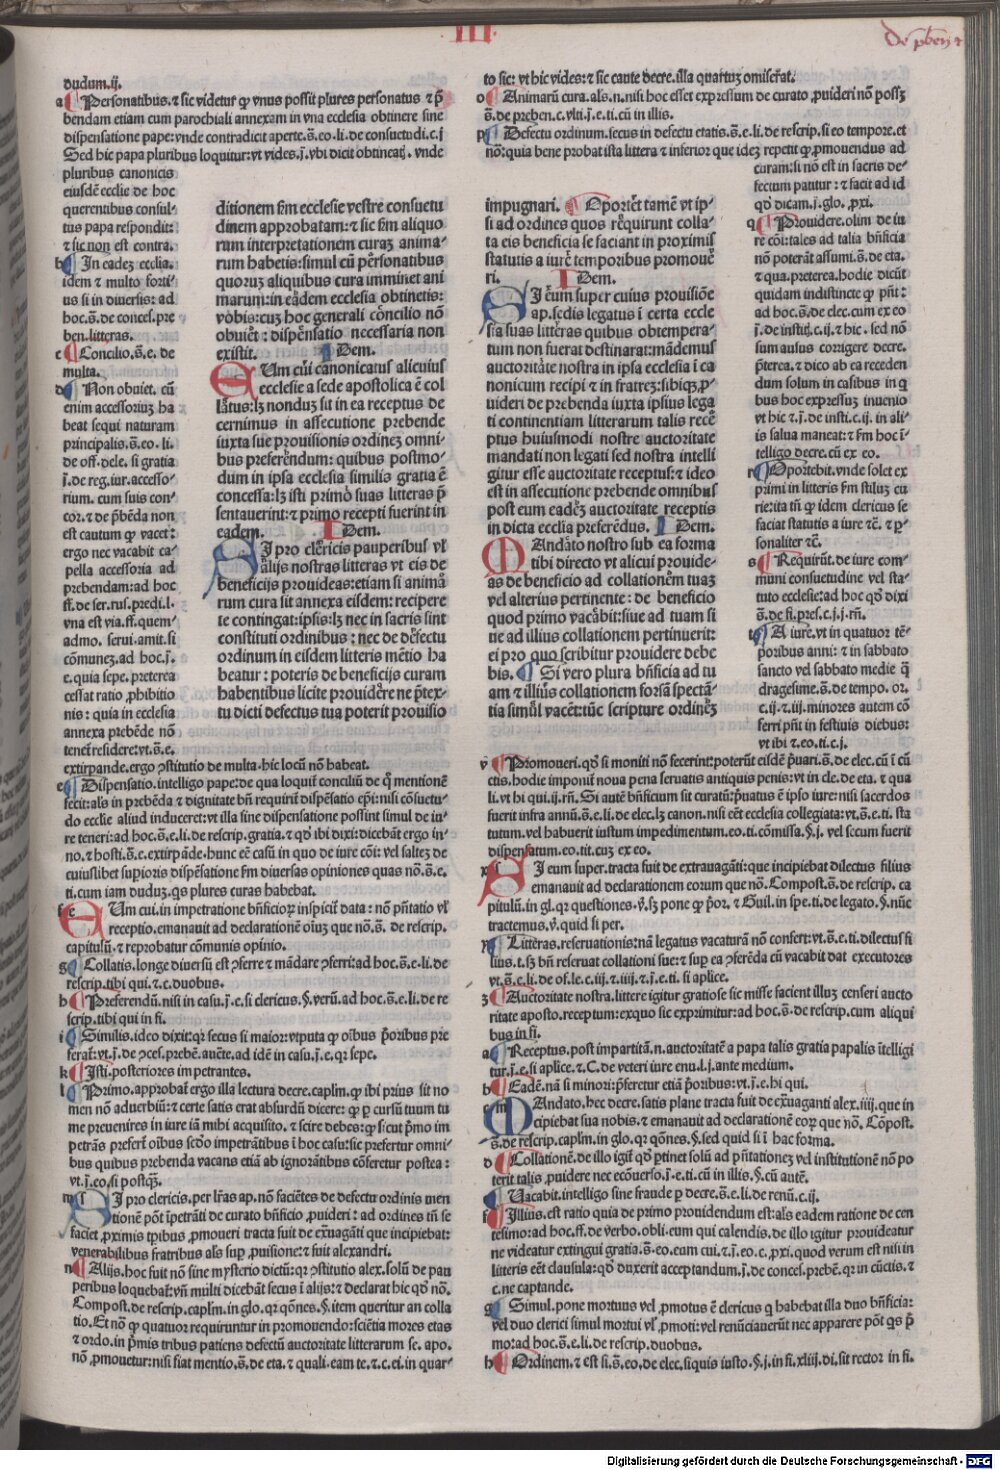 III
De pben̄ ⁊
dudum.ij.
a Personatibus.⁊ sic videtur ꝙ vnus possit plures personatus ⁊ p̄
bendam etiam cum parochiali annexam in vna ecclesia obtinere sine
dispensatione pape:vnde contradicit aperte.s̄.eo.li.de consuetudi.c.j
Sed hic papa pluribus loquitur:vt vides.j.vbi dicit obtineatj. vnde
pluribus canonicis
eiusdē ecclie de hoc
querentibus consul-
tus papa respondit:
⁊ sic non est contra.
b In eadez ecclia.
idem ⁊ multo forti-
us si in diuersis: ad
hoc.s̄.de conces.pre
ben.litteras.
c Concilio.s̄.e. de
multa.
d Non obuiet. cū
enim accessoriuz ha
beat sequi naturam
principalis.s̄.eo. li.
de off.dele. si gratia
j̄.de reg.iur.accesso-
rium. cum suis con-
cor.⁊ de p̄bēda non
est cautum ꝙ vacet:
ergo nec vacabit ca-
pella accessoria ad
prebendam:ad hoc
ff.de ser.rus.predi.l.
vna est via.ff.quem-
admo. serui.amit.si
cōmunez.ad hoc.j̄.
e.quia sepe. preterea
cessat ratio ꝓhibitio
nis : quia in ecclesia
annexa prebēde nō
tenet̄ residere:vt.s̄.e.
extirpande.ergo ꝯstitutio de multa.hic locū nō habeat.
e Dispensatio.intelligo pape:de qua loquit̄ conciliū de q̄ mentionē
fecit:als in prebēda ⁊ dignitate bn̄ requirit̄ dispēsatio ep̄i:nisi cōsuetu-
do ecclie aliud induceret:vt illa sine dispensatione possint simul de iu-
re teneri:ad hoc.s̄.e.li.de rescrip.gratia.⁊ qd̄ ibi dixi:dicebāt ergo in-
no.⁊ hosti.s̄.e.extirpāde.hunc eē casū in quo de iure cōi:vel saltez de
cuiuslibet supioris dispēsatione fm diuersas opiniones quas nō.s̄.e.
ti.cum iam duduz.qs plures curas habebat.
f EUm cui.in impetratione bn̄ficioꝝ inspicit̄ data : nō pn̄tatio vl̄
receptio.emanauit ad declarationē oīuz que nō.s̄. de rescrip.
capitulū.⁊ reprobatur cōmunis opinio.
g Collatis.longe diuersū est ꝯferre ⁊ mādare ꝯferri:ad hoc.s̄.e.li.de
rescrip.tibi qui.⁊.c.duobus.
h Preferendū.nisi in casu.j̄.e.si clericus.§.verū.ad hoc.s̄.e.li.de re
scrip.tibi qui in fi.
i Similis.ideo dixit:qr secus si maior:vtputa ꝙ oībus p̄oribus pre
ferat̄:vt.j̄.de ꝯces.prebē.auēte.ad idē in casu.j̄.e.qr sepe.
k Isti.posteriores impetrantes.
l Primo.approbat̄ ergo illa lectura decre.caplm.ꝙ ibi prius sit no
men nō aduerbiū:⁊ certe satis erat absurdū dicere: ꝙ ꝑ cursū tuum tu
me preuenires in iure iā mihi acquisito. ⁊ scire debes:ꝙ sicut p̄mo im
petrās prefert̄ oībus scd̄o impetrātibus ī hoc casu:sic prefertur omni-
bus quibus prebenda vacans etiā ab ignorātibus cōferetur postea :
vt.j̄.eo.si postqʒ.
m SI pro clericis.per lr̄as ap.nō faciētes de defectu ordinis men
tionē pōt īpetrāti de curato bn̄ficio ꝓuideri : ad ordines tn̄ se
faciet ꝓximis tp̄ibus ꝓmoueri tracta fuit de ex̄uagāti que incipiebat:
venerabilibus fratribus als̄ sup ꝓuisione:⁊ fuit alexandri.
n Alijs.hoc fuit nō sine mysterio dictū:qr ꝯstitutio alex.solū de pau
peribus loquebat̄:vn̄ multi dicebāt secus ī alijs:⁊ declarat hic qd̄ nō.
Compost.de rescrip.caplm.in glo.qr qōnes.§.item queritur an colla
tio.Et nō ꝙ quatuor requiruntur in promouendo:sciētia mores etas
⁊ ordo.in p̄mis tribus patiens defectū auctoritate litterarum se. apo.
nō ꝓmouetur:nisi fiat mentio.s̄.de eta.⁊ quali.eam te.⁊.c.ei.in quar-
ditionem fm ecclesie vestre consuetu
dinem approbatam:⁊ sic fm aliquo
rum interpretationem curaz anima-
rum habetis:simul cū personatibus
quoruz aliquibus cura imminet ani
marum:in eadem ecclesia obtinetis:
vobis:cuz hoc generali concilio nō
obuiet : dispensatio necessaria non
existit. IDem.
EUm cui canonicatus alicuius
ecclesie a sede apostolica ē col
latus:lz nonduz sit in ea receptus de
cernimus in assecutione prebende
iuxta sue prouisionis ordinez omni-
bus preferendum: quibus postmo-
dum in ipsa ecclesia similis gratia ē
concessa:lz isti primo suas litteras p̄
sentauerint:⁊ primo recepti fuerint in
eadem. IDem.
SI pro clericis pauperibus vl̄
alijs nostras litteras vt eis de
beneficijs prouideas:etiam si anima
rum cura sit annexa eisdem: recipere
te contingat:ipsis:lz nec in sacris sint
constituti ordinibus : nec de defectu
ordinum in eisdem litteris mētio ha
beatur : poteris de beneficijs curam
habentibus licite prouidere ne p̄tex-
tu dicti defectus tua poterit prouisio
to sic: vt hic vides:⁊ sic caute decre.illa quartuz omiserat.
o Animarū cura.als.n.nisi hoc esset expressum de curato ꝓuideri nō possz
s̄.de preben.c.vlti.j̄.e.ti.cū in illis.
p Defectu ordinum.secus in defectu etatis.s̄.e.li.de rescrip.si eo tempore.et
nō:quia bene probat ista littera ⁊ inferior que idez repetit ꝙ ꝓmouendus ad
curam:si nō est in sacris de-
fectum patitur : ⁊ facit ad id
qd̄ dicam.j̄.glo.ꝓxi.
q Prouidere.olim de iu
re cōi:tales ad talia bn̄ficia
nō poterāt assumi.s̄.de eta.
⁊ qua.preterea.hodie dicūt
quidam indistincte ꝙ pn̄t:
ad hoc.s̄.de elec.cum ex eo
j̄.de institj.c.ij.⁊ hic . sed nō
sum ausus corrigere decre.
p̄terea.⁊ dico ab ea receden
dum solum in casibus in q
bus hoc expressuz inuenio
vt hic ⁊.j̄.de insti.c.ij. in ali-
is salua maneat:⁊ fm hoc ī-
telligo decre.cū ex eo.
r Oportebit.vnde solet ex
primi in litteris fm stiluz cu
rie:ita tn̄ ꝙ idem clericus se
faciat statutis a iure ⁊c̄. ⁊ ꝑ-
sonaliter ⁊c̄.
s Requirūt.de iure com-
muni consuetudine vel sta-
tuto ecclesie:ad hoc qd̄ dixi
s̄.de fi.pres.c.j.j.rn̄.
t A iure.vt in quatuor tē-
poribus anni: ⁊ in sabbato
sancto vel sabbato medie q̄
dragesime.s̄.de tempo. or.
c.ij.⁊ iij.minores autem cō
ferri pn̄t in festiuis diebus:
vt ibi ⁊.eo.ti.c.j.
v Promoueri.qd̄ si moniti nō fecerint:poterūt eisdē p̄uari.s̄.de elec.cū ī cū
ctis.hodie imponit̄ noua pena seruatis antiquis penis:vt in cle.de eta. ⁊ qua
li.vt hi qui.ij.rn̄.Si autē bn̄ficium sit curatū:p̄uatus ē ipso iure:nisi sacerdos
fuerit infra annū.s̄.e.li.de elec.lz canon.nisi eēt ecclesia collegiata:vt.s̄.e.ti. sta
tutum.vel habuerit iustum impedimentum.eo.ti.cōmissa.§.j.vel secum fuerit
dispensatum.eo.tit.cuz ex eo.
x SI eum super.tracta fuit de extrauagāti:que incipiebat dilectus filius
emanauit ad declarationem eorum que nō.Compost.s̄.de rescrip. ca
pitulū.in gl.qr questiones.v̄.sz pone ꝙ p̄or. ⁊ Guil.in spe.ti.de legato.§.nūc
tractemus.v̄.quid si per.
y Litteras.reseruationis:nā legatus vacaturā nō confert:vt.s̄.e.ti.dilectus fi
lius.t.sz bn̄ reseruat collationi sue:⁊ sup ea ꝯferēda cū vacabit dat executores
vt.s̄.e.li.de of.le.c.ij.⁊ iiij.⁊ j̄.e.ti.si aplice.
z Auctoritate nostra.littere igitur gratiose sic misse facient illuz censeri aucto
ritate aposto.receptum:exquo sic exprimitur:ad hoc.s̄.de rescrip.cum aliqui
bus in fi.
a Receptus.post impartitā.n.auctoritatē a papa talis gratia papalis ītelligi
tur.j̄.e.si aplice.⁊.C.de veteri iure enu.l.j.ante medium.
b Eadē.nā si minori:p̄feretur etiā p̄oribus:vt.j̄.e.hi qui.
c MAndato.hec decre.satis plane tracta fuit de ex̄uaganti alex.iiij.que in
cipiebat sua nobis.⁊ emanauit ad declarationē eoꝝ que nō.Cōpost.
s̄.de rescrip.caplm.in glo.qr qōnes.§.sed quid si ī hac forma.
d Collationē.de illo igit̄ qd̄ ꝑtinet solū ad pn̄tationez vel institutionē nō po
terit talis ꝓuidere nec ecōuerso.j̄.e.ti.cū in illis.§.cū autē.
e Vacabit.intelligo sine fraude ꝑ decre.s̄.e.li.de renū.c.ij.
f Illius.est ratio quia de primo prouidendum est:als eadem ratione de cen
tesimo:ad hoc.ff.de verbo.obli.eum qui calendis.de illo igitur prouideatur
ne videatur extingui gratia.s̄.eo.eam cui.⁊.j̄.eo.c.ꝓxi.quod verum est nisi in
litteris eēt clausula:qd̄ duxerit acceptandum.j̄.de conces.prebē.qr in cūctis.⁊
c.ne captande.
g Simul.pone mortuus vel ꝓmotus ē clericus q habebat illa duo bn̄ficia:
vel duo clerici simul mortui vl̄ ꝓmoti:vel renūciauerūt nec apparere pōt qs p̄
mo:ad hoc.s̄.e.li.de rescrip.duobus.
h Ordinem.⁊ est si.s̄.eo.de elec.siquis iusto.§.j.in fi.xliij.di.sit rector in fi.
impugnari. Oportet tamē vt ip-
si ad ordines quos requirunt colla-
ta eis beneficia se faciant in proximis
statutis a iure temporibus promoue
ri. IDem.
SI eum super cuius prouisiōe
ap.sedis legatus ī certa eccle
sia suas litteras quibus obtempera-
tum non fuerat destinarat:mādemus
auctoritate nostra in ipsa ecclesia ī ca
nonicum recipi ⁊ in fratrez:sibiqz ꝓ-
uideri de prebenda iuxta ipsius lega
ti continentiam litterarum talis rece
ptus huiusmodi nostre auctoritate
mandati non legati sed nostra intelli
gitur esse auctoritate receptus:⁊ ideo
est in assecutione prebende omnibus
post eum eadez auctoritate receptis
in dicta ecclia preferēdus. IDem.
MAndato nostro sub ea forma
tibi directo vt alicui prouide-
as de beneficio ad collationem tuaz
vel alterius pertinente : de beneficio
quod primo vacabit:siue ad tuam si
ue ad illius collationem pertinuerit:
ei pro quo scribitur prouidere debe
bis. Si vero plura bn̄ficia ad tu
am ⁊ illius collationem forsā spectā-
tia simul vacēt:tūc scripture ordinez
Digitalisierung gefördert durch die Deutsche Forschungsgemeinschaft - DFG